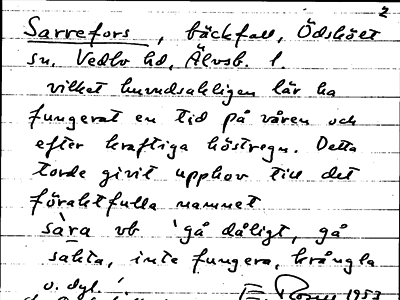 2
Sarrefors, bäckfall, Ödskölt
sn, Vedbo hd, Älvsb. l.
vilket huvudsakligen lär ha
fungerat en tid på våren och
efter kraftiga höstregn. Detta
torde givit upphov till det
föraktfulla namnet
sàra vb 'gå dåligt, gå
sakta, inte fungera, krångla
o. dyl.'
1953